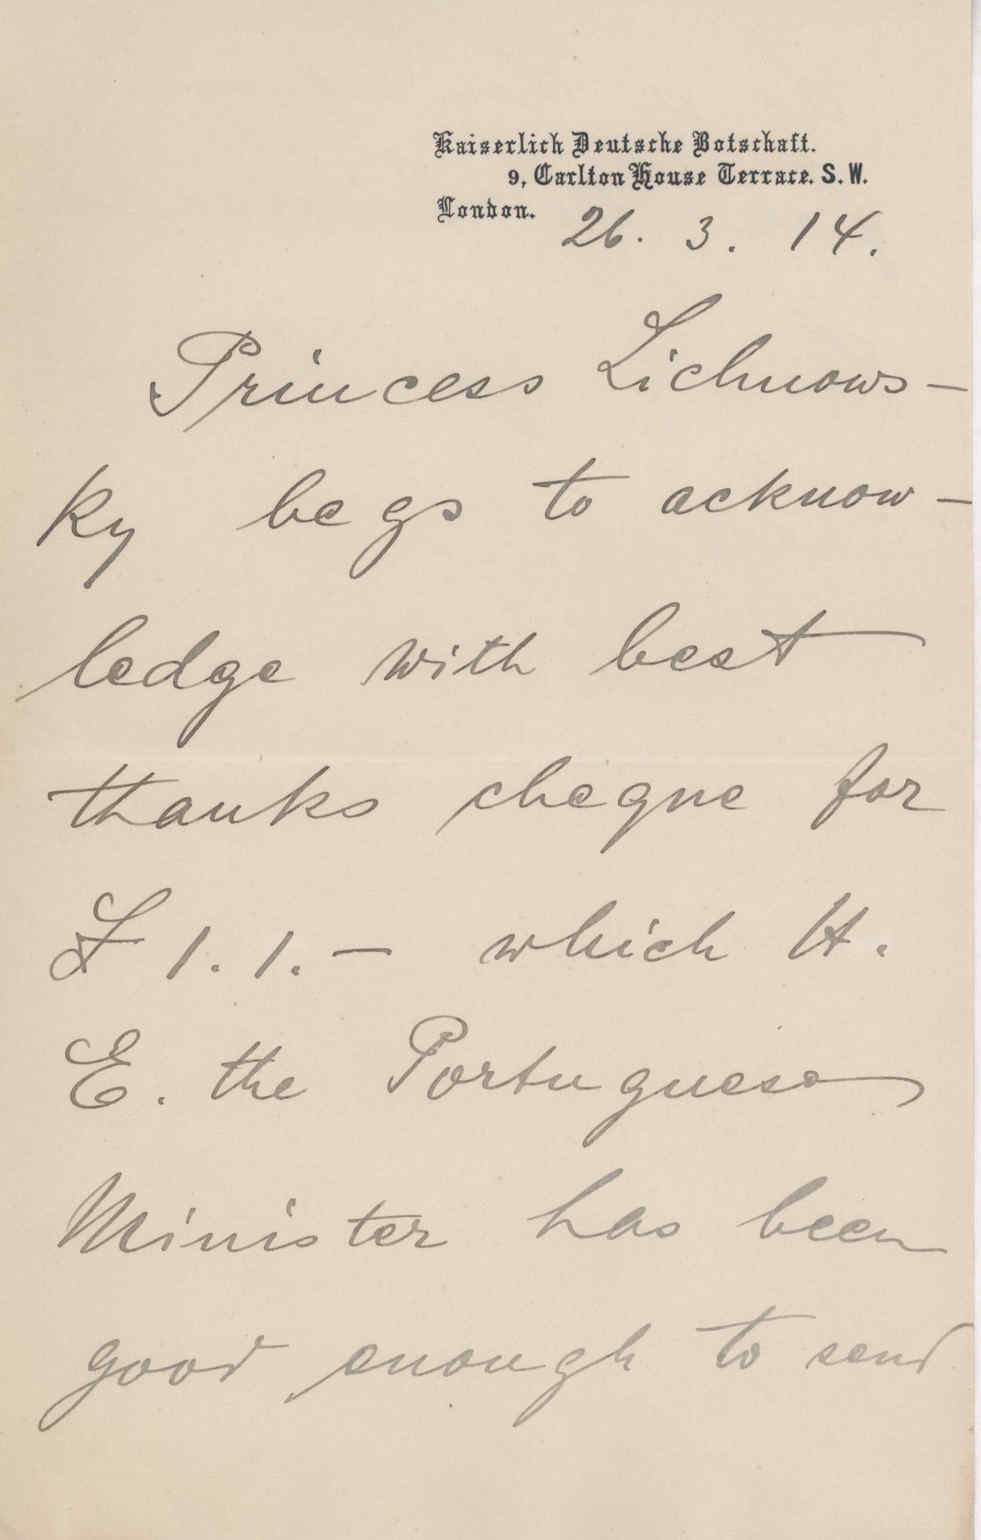 Kaiserlich Deutsche Botschaft.
9, Carlton House Terrace. S.W.
London. 26. 3. 14.
Princess Lichnows-
ky begs to acknow-
ledge with best
thanks cheque for
£ 1.1.- which H.
E. the Portuguese
Minister has been
good enough to send